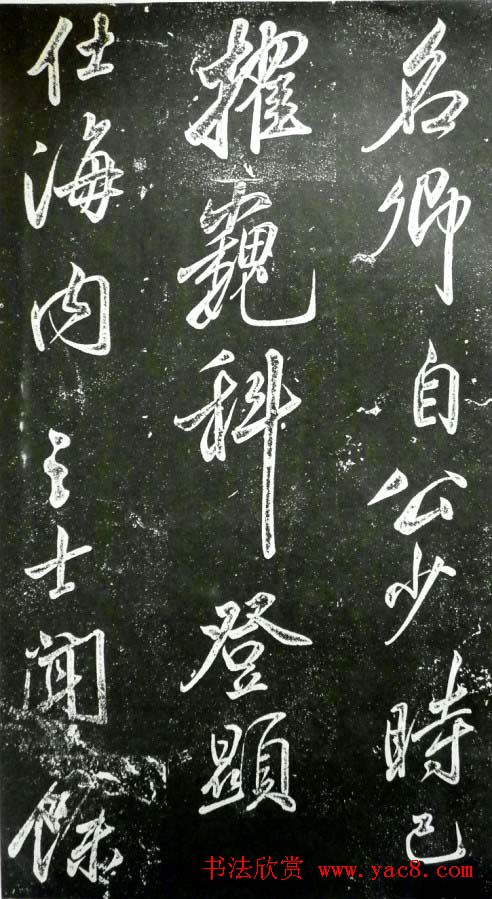 名卿自公少時已
擢巍科登顯
仕海内之士聞餘
书法欣赏 www.yac8.com